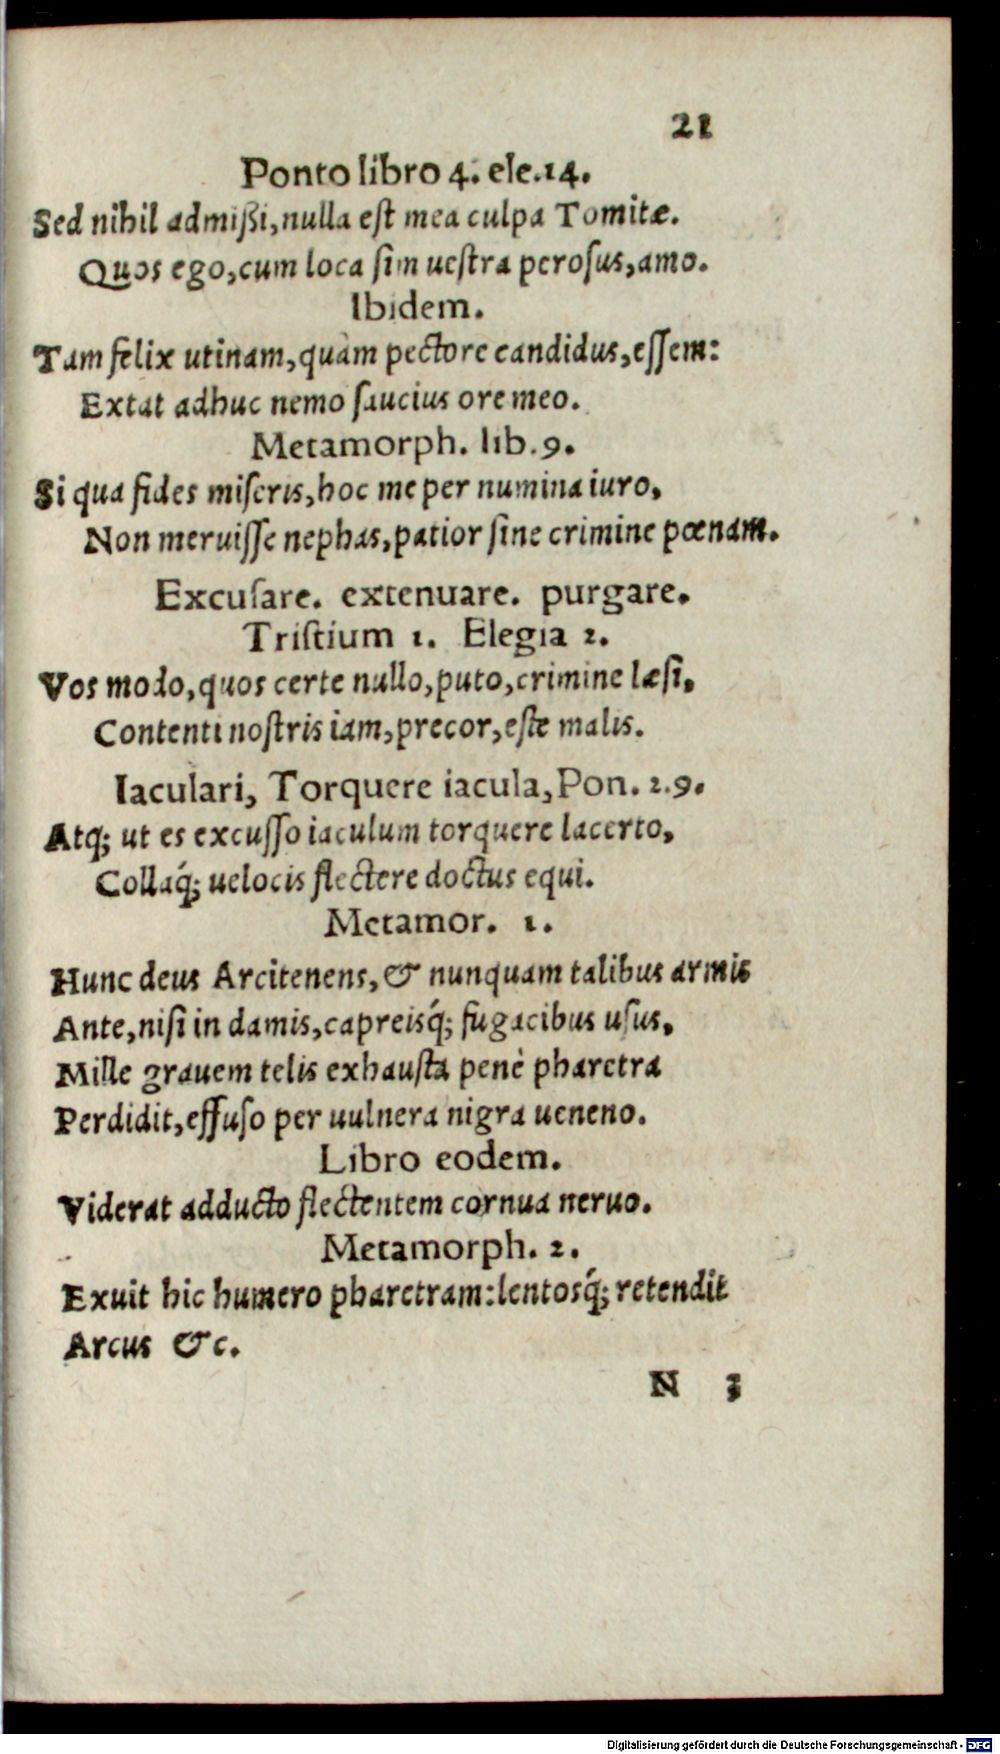 21
Ponto libro 4. ele.14.
Sed nihil admißi, nulla est mea culpa Tomitæ.
Quos ego, cum loca sim uestra perosus, amo.
Ibidem.
Tam felix utinam, quàm pectore candidus, essem:
Extat adhuc nemo saucius ore meo.
Metamorph. lib.9.
Si qua fides miseris, hoc me per numina iuro,
Non meruisse nephas, patior sine crimine pœnam.
Excusare. extenuare. purgare.
Tristium 1. Elegia 2.
Vos modo, quos certe nullo, puto, crimine læsi,
Contenti nostris iam, precor, este malis.
Iaculari, Torquere iacula, Pon. 2.9.
Atq; ut es excusso iaculum torquere lacerto,
Collaq́; uelocis flectere doctus equi.
Metamor. 1.
Hunc deus Arcitenens, & nunquam talibus armis
Ante, nisi in damis, capreisq́; fugacibus usus,
Mille grauem telis exhausta penè pharetra
Perdidit, effuso per uulnera nigra ueneno.
Libro eodem.
Viderat adducto flectentem cornua neruo.
Metamorph. 2.
Exuit hic humero pharetram: lentosq́; retendit
Arcus &c.
N 3
Digitalisierung gefördert durch die Deutsche Forschungsgemeinschaft - DFG